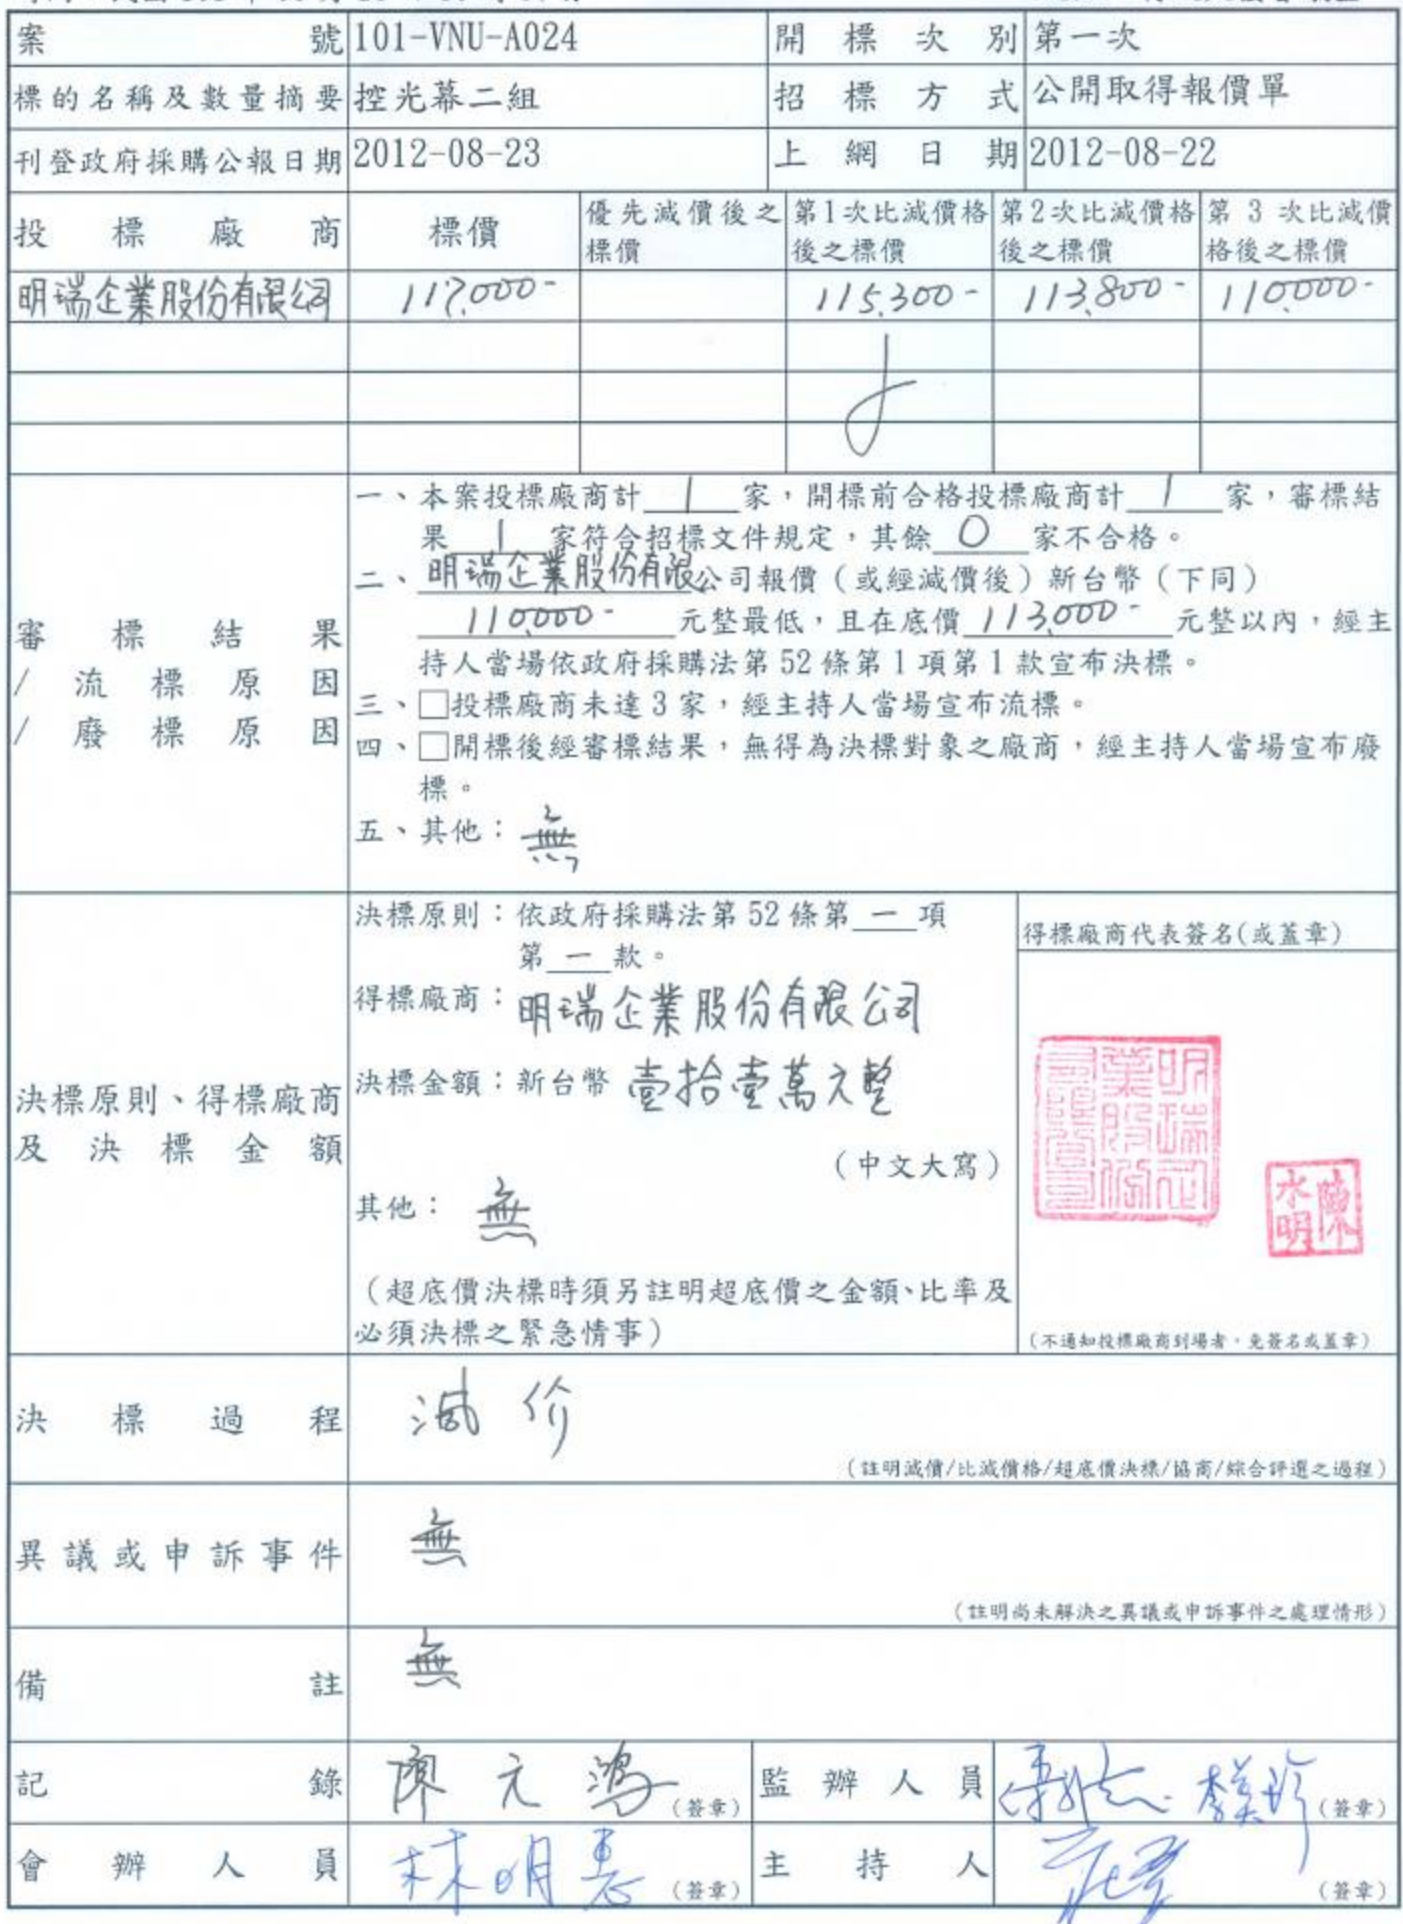 案號 101-VNU-A024 開標次別 第一次
標的名稱及數量摘要 控光幕二組 招標方式 公開取得報價單
刊登政府採購公報日期 2012-08-23 上網日期 2012-08-22
投標廠商 標價 優先減價後之標價 第1次比減價格後之標價 第2次比減價格後之標價 第3次比減價格後之標價
明瑞企業股份有限公司 117,000- 115,300- 113,800- 110,000-
審標結果
/流標原因
/廢標原因
一、本案投標廠商計 1 家,開標前合格投標廠商計 1 家,審標結
果 1 家符合招標文件規定,其餘 0 家不合格。
二、明瑞企業股份有限公司報價(或經減價後)新台幣(下同)
110,000- 元整最低,且在底價 113,000- 元整以內,經主
持人當場依政府採購法第52條第1項第1款宣布決標。
三、□投標廠商未達3家,經主持人當場宣布流標。
四、□開標後經審標結果,無得為決標對象之廠商,經主持人當場宣布廢
標。
五、其他:無
決標原則、得標廠商
及決標金額
決標原則:依政府採購法第52條第 一 項
第 一 款。
得標廠商:明瑞企業股份有限公司
決標金額:新台幣 壹拾壹萬元整
(中文大寫)
其他:無
(超底價決標時須另註明超底價之金額、比率及
必須決標之緊急情事)
得標廠商代表簽名(或蓋章)
明瑞企業股份有限公司
陳水明
(不通知投標廠商到場者,免簽名或蓋章)
決標過程 減价
(註明減價/比減價格/超底價決標/協商/綜合評選之過程)
異議或申訴事件 無
(註明尚未解決之異議或申訴事件之處理情形)
備註 無
記錄 廖元鴻 (簽章) 監辦人員 (簽章)
會辦人員 林明惠 (簽章) 主持人 (簽章)